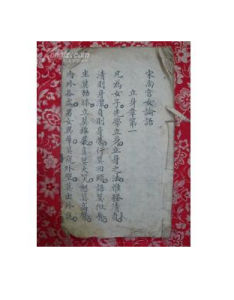 宋尚宮女論語
立身章第一
凡為女子先學立身立身之法惟務清貞
清則身潔貞則身榮行莫回頭語莫掀唇
坐莫動膝立莫搖裙喜莫大笑怒莫高聲
內外各處男女異羣莫窺外壁莫出外庭